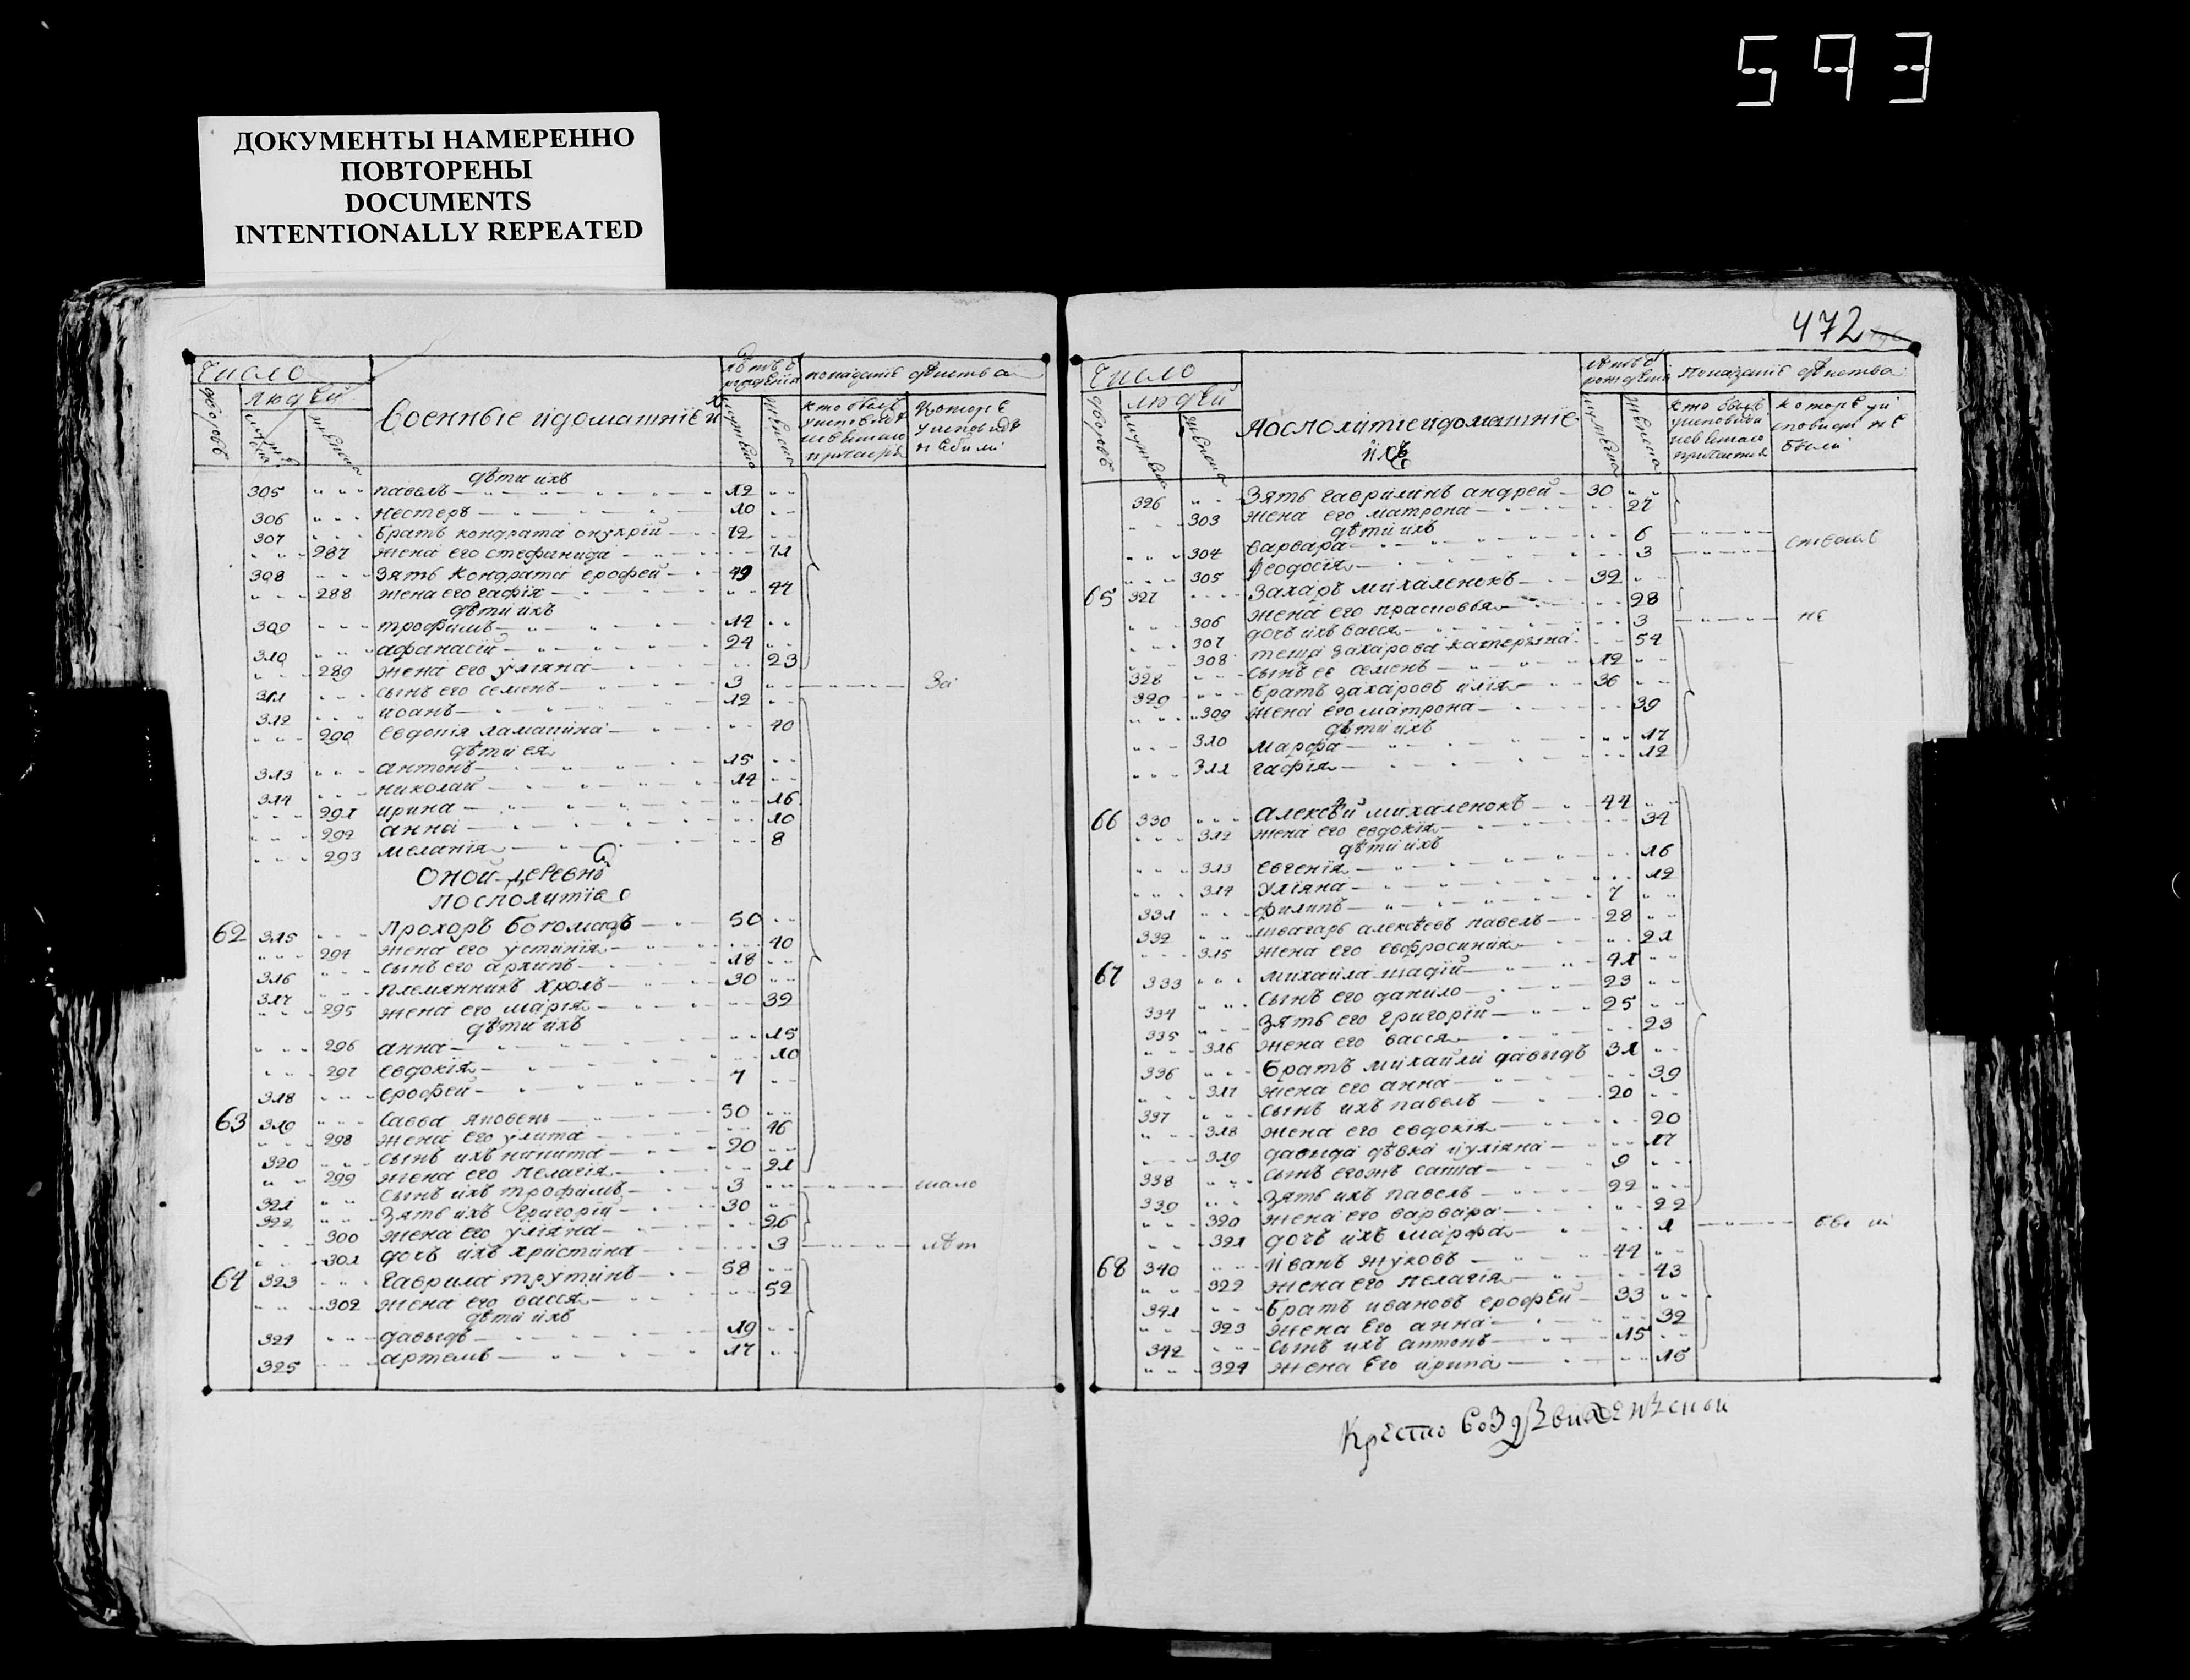 593
ДОКУМЕНТЫ НАМЕРЕННО
ПОВТОРЕНЫ
DOCUMENTS
INTENTIONALLY REPEATED
Число
людей
дворовъ
мужеска
женска
Военные идомашнiе ихъ
лѣтъ ѿ рожденiя
мужеска
женска
показанiе дѣиства
кто былъ
уисповеди
исвятаго
причастiя
Которiе
уисповеди
небили
дѣти ихъ
305 павелъ 12
306 нестеръ 10
307 братъ кондрата онухрiй 72
287 жена его стефанида 71
308 Зять кондрата ерофей 49
288 жена его гафiя 44
дѣти ихъ
309 трофимъ 14
310 афанасiй 24
289 жена его улiяна 23
311 сынъ его семенъ 3 За
312 иоанъ 12
290 евдокiя ламашина 40
дѣти ея
313 антонъ 15
314 николай 14
291 ирина 16
292 анна 10
293 меланiя 8
Оной деревнѣ
посполитiе
62 315 Прохоръ богомазъ 50
294 жена его устинiя 40
316 сынъ его архипъ 18
317 племянникъ хролъ 30
295 жена его марiя 32
дѣти ихъ
296 анна 15
297 евдокiя 10
318 ерофей 7
63 319 Савва яковень 50
298 жена его улита 46
320 сынъ ихъ никита 20
299 жена его пелагiя 21
321 сынъ ихъ трофимъ 3 мало
322 Зять ихъ григорiй 30
300 жена его улiяна 26
301 дочь ихъ христина 3 лѣт
64 323 Гаврила трутинъ 58
302 жена его васся 52
дѣти ихъ
324 давыдъ 19
325 артемъ 17
472
Число
людей
дворовъ
мужеска
женска
Посполитiе идомашнiе
ихъ
лѣтъ ѿ рожденiя
мужеска
женска
Показанiе дѣиства
кто былъ
уисповеди
исвятаго
причастiя
которiе уи
споведи не
были
326 Зять гаврилинъ андрей 30
303 жена его матрона 27
дѣти ихъ
304 варвара 6
305 феодосiя 3
65 327 Захаръ михаленокъ 32
306 жена его прасковья 28
307 дочъ ихъ васся 3 не
308 теща захарова катерина 54
328 сынъ ее семенъ 12
329 братъ захаровъ илiя 36
309 жена его матрона 39
дѣти ихъ
310 марфа 17
311 гафiя 12
66 330 Алексѣй михаленокъ 44
312 жена его евдокiя 34
дѣти ихъ
313 евгенiя 16
314 улiяна 12
331 филипъ 7
332 швагаръ алексѣевъ павелъ 28
315 жена его евфросинiя 21
67 333 михайла шадiй 41
334 сынъ его данило 23
335 Зять его григорiй 25
316 жена его васся 23
336 братъ михайли давыдъ 31
317 жена его анна 39
337 сынъ ихъ павелъ 20
318 жена его евдокiя 20
319 давида дѣвка иулiяна 17
338 сынъ егожъ саша 9
339 Зять ихъ павелъ 22
320 жена его варвара 22
321 дочь ихъ марфа 1
68 340 Иванъ жуковъ 44
322 жена его пелагiя 43
341 братъ ивановъ ерофей 33
323 жена его анна 32
342 сынъ ихъ антонъ 15
324 жена его ирина 15
Крестовоздвиженской